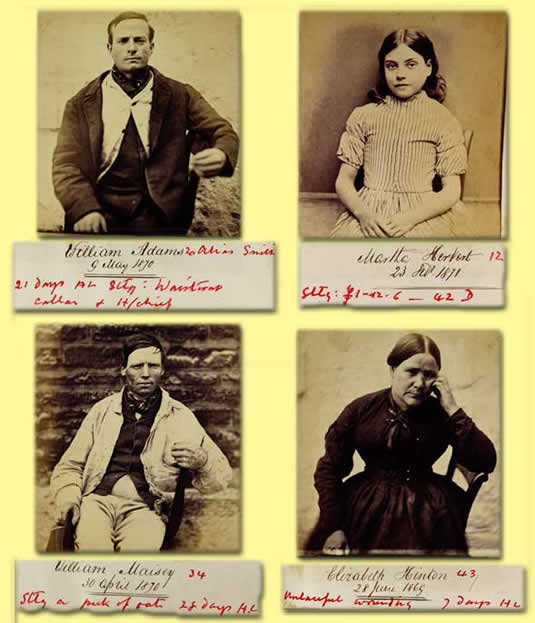 William Adams 20 Alias Smith
9 May 1870
21 Days HL Sttg: Waistcoat
collar & H/chief
Martha Herbert 12
23 Feb 1871
Sttg: £1-12-6 — 42 D
William Maisey 34
30 April 1870
Sttg a peck of oats 28 days H.L
Elizabeth Hinton 43
28 June 1869
Unlawful wounding 7 Days HL